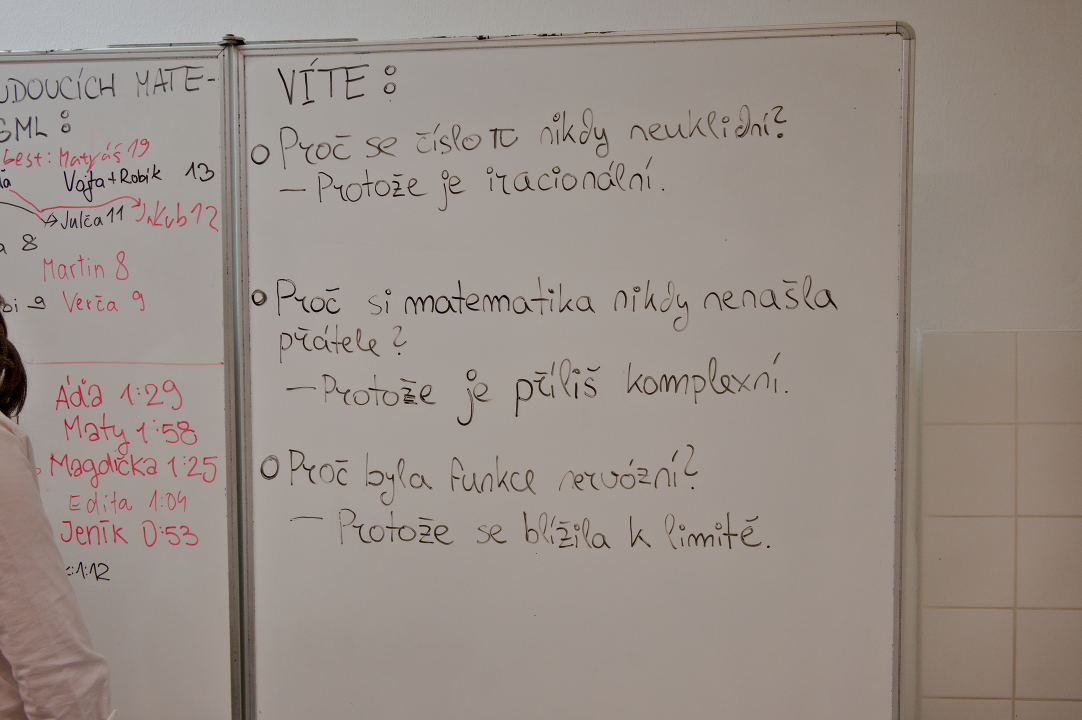 UDOUCÍCH MATE-
GML:
best: Matyáš 19
Vojta+Robík 13
Julča 11 Jakub 12
8
Martin 8
9 Verča 9
Áďa 1:29
Maty 1:58
Magdička 1:25
Edita 1:04
Jeník 0:53
<1:12
VÍTE:
Proč se číslo π nikdy neuklidní?
– Protože je iracionální.
Proč si matematika nikdy nenašla
přátele?
– Protože je příliš komplexní.
Proč byla funkce nervózní?
– Protože se blížila k limitě.